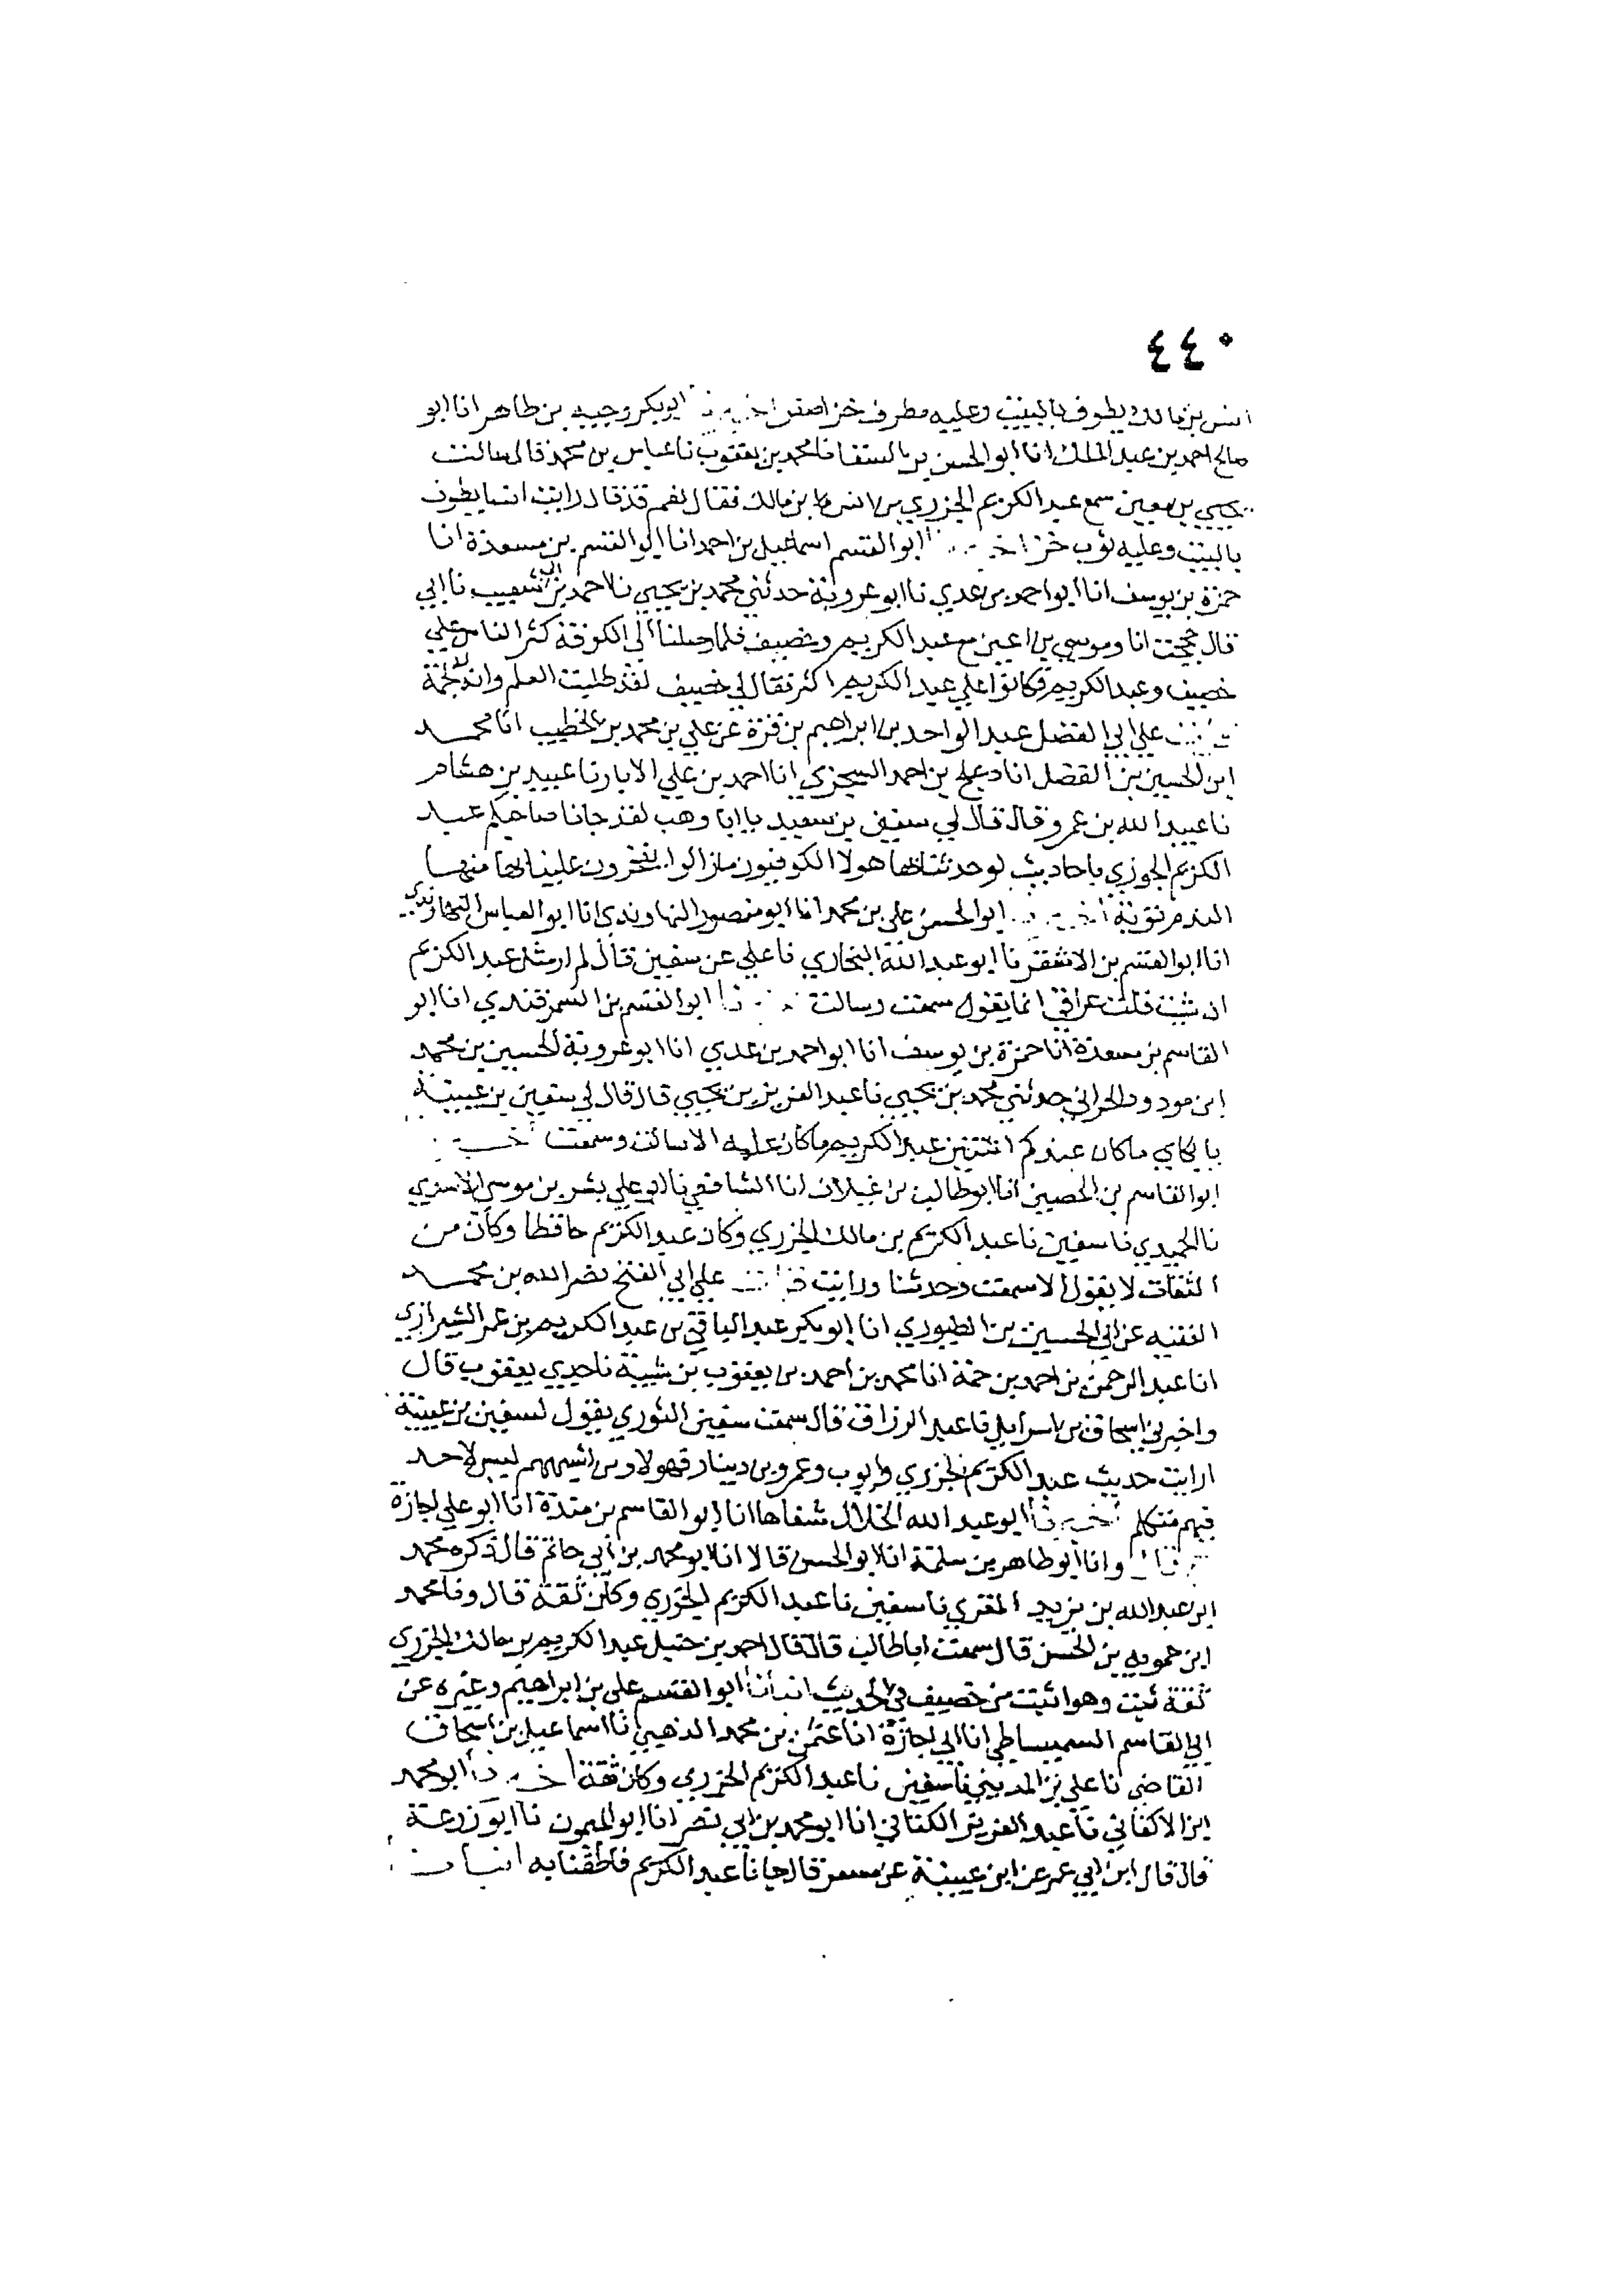 ٤٤٠
انس بن مالك يطوف بالبيت وعليه مطرف خز اصفر اخبرنا ابو بكر وجيه بن طاهر انا ابو
صالح احمد بن عبد الملك انا ابو الحسن بن السقا نا محمد بن يعقوب نا عباس بن محمد قال سالت
يحيي بن معين سمع عبد الكريم الجزري من انس بن مالك فقال نعم قد قال رايت انسا يطوف
بالبيت وعليه ثوب خز اخبرنا ابو القسم اسماعيل بن احمد انا ابو القسم بن مسعدة انا
حمزة بن يوسف انا ابو احمد بن عدي نا ابو عروبة حدثني محمد بن يحيي نا احمد بن ابي شعيب نا ابي
قال حججت انا وموسي بن اعين مع عبد الكريم وخصيف فلما وصلنا الي الكوفة كثر الناس علي
خصيف وعبد الكريم وكانوا علي عبد الكريم اكثر فقال لي خصيف لقد طلبت العلم وان له لجمة
قرات علي ابي الفضل عبد الواحد بن ابراهيم بن قزة عن علي بن محمد بن الخطيب انا محمد
ابن الحسين بن الفضل انا دعلج بن احمد السجزي انا احمد بن علي الابار نا عبيد بن هشام
نا عبيد الله بن عمرو قال قال لي سفين بن سعيد يا ابا وهب لقد جانا صاحبكم عبد
الكريم الجوزي باحاديث لو حدثنا بها هولا الكوفيون مازالوا يفخرون علينا بها منها
الندم توبة اخبرنا ابو الحسن علي بن محمد انا ابو منصور النهاوندي انا ابو العباس النهاوندي
انا ابو القسم بن الاشقر نا ابو عبد الله البخاري نا علي عن سفين قال لم ار مثل عبد الكريم
ان شيت قلت عراقي انما يقول سمعت وسالت اخبرنا ابو القسم بن السمرقندي انا ابو
القاسم بن مسعدة انا حمزة بن يوسف انا ابو احمد بن عدي انا ابو عروبة الحسين بن محمد
ابن مودود الحراني حدثني محمد بن يحيي نا عبد العزيز بن يحيي قال قال لي سفين بن عيينة
يا بكاي ما كان عندكم اثبت من عبد الكريم ما كان علمه الا سالت وسمعت اخبرنا
ابو القاسم بن الحصين انا ابو طالب بن غيلان انا الشافعي نا ابو علي بشر بن موسي الاسدي
نا الحميدي نا سفين نا عبد الكريم بن مالك الجزري وكان عبد الكريم حافظا وكان من
الثقات لا يقول الا سمعت وحدثنا ورايت قرات علي ابي الفتح نصر الله بن محمد
الفقيه عن ابي الحسين بن الطيوري انا ابو بكر عبد الباقي بن عبد الكريم بن عمر الشيرازي
انا عبد الرحمن بن احمد بن حمة انا محمد بن احمد بن يعقوب بن شيبة نا جدي يعقوب قال
واخبرني اسحاق بن اسرايل نا عبد الرزاق قال سمعت سفين الثوري يقول لسفين بن عيينة
ارايت حديث عبد الكريم الجزري وايوب وعمرو بن دينار فهولا ومن اشبههم ليس لاحد
فيهم متكلم اخبرنا ابو عبد الله الخلال شفاها انا ابو القاسم بن مندة انا ابو علي اجازة
قال وانا ابو طاهر بن سلمة انا ابو الحسن قالا انا ابو محمد بن ابي حاتم قال ذكره محمد
ابن عبد الله بن يزيد المقري نا سفين نا عبد الكريم الجزري وكان ثقة قال ونا محمد
ابن حمويه بن الحسن قال سمعت ابا طالب قال قال احمد بن حنبل عبد الكريم بن مالك الجزري
ثقة ثبت وهو اثبت من خصيف في الحديث انبانا ابو القسم علي بن ابراهيم وغيره عن
ابي القاسم السميساطي انا ابي اجازة انا عثمن بن محمد الذهبي نا اسماعيل بن اسحاق
القاضي نا علي بن المديني نا سفين نا عبد الكريم الجزري وكان ثقة اخبرنا ابو محمد
ابن الاكفاني نا عبد العزيز الكتاني انا ابو محمد بن ابي نصر انا ابو الميمون نا ابو زرعة
قال قال ابن ابي عمر عن ابن عيينة عن مسعر قال جانا عبد الكريم فاطفنا به انبانا